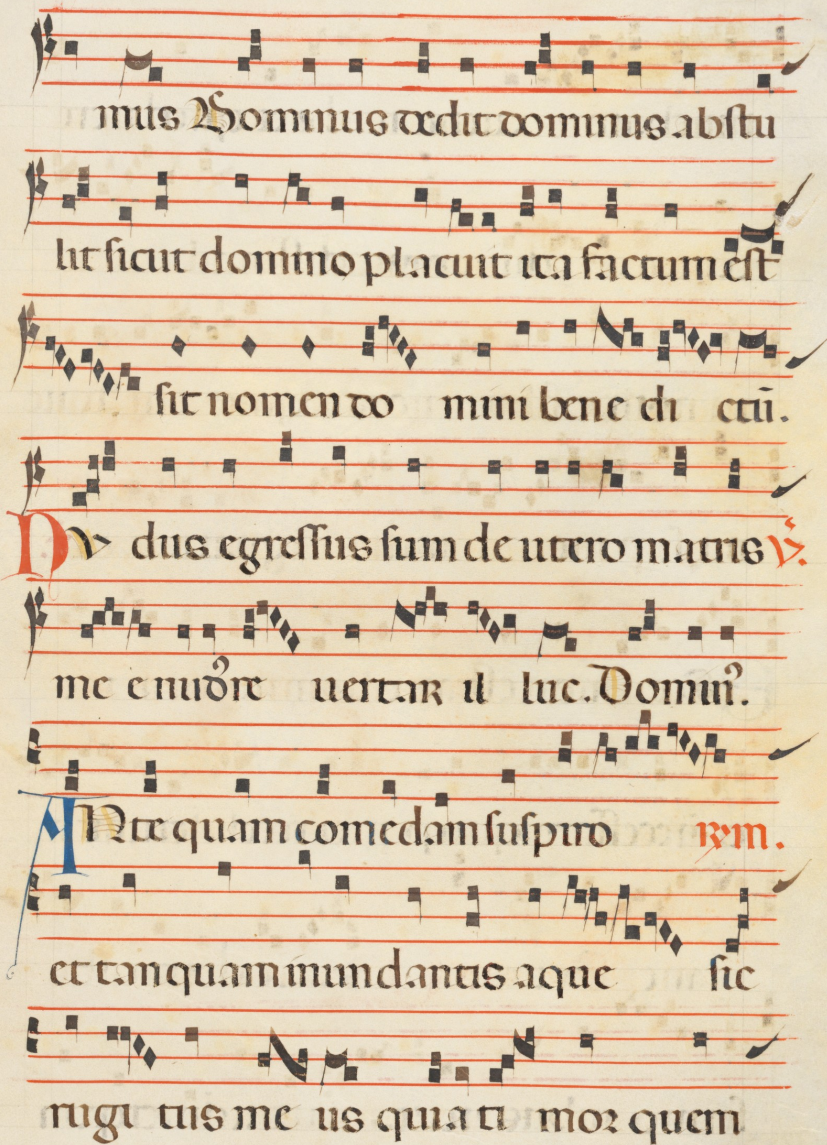 mus Dominus dedit dominus abstu
lit sicut domino placuit ita factum est
sit nomen do mini bene di ctū.
NV dus egressus sum de utero matris ℣.
me e nudore uertar il luc. Domin⁹.
ANte quam comedam suspiro
et tanquam inundantis aque sic
rugi tus me us quia ti mor quem